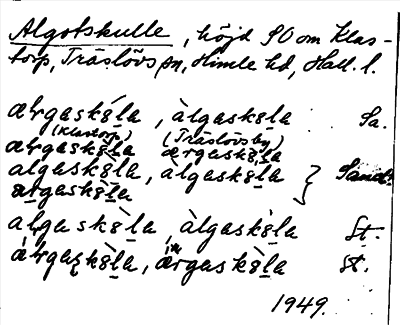 Algotskulle, höjd SO om Klas-
torp, Träslövs sn, Himle hd, Hall. l.
ærgaskȣ́la, àlgaskȣla Sa.
(Klastorp) (Träslövsby)
ærgaskȣ̀la ærgaskȣ̀la
algaskȣ̀la, àlgaskȣla } Sand.
argaskȣ̀la
algaskȣ̀la, àlgaskȣ̀la St.
árgaskȣ̀la, ærgaskȣ̀la St.
1949.